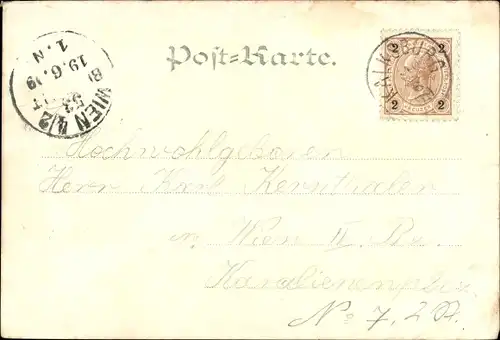 Post-Karte.
KALKSBURG
2 2
2 2
WIEN 4/2
53
19.6.99
1.N
Hochwohlgeboren
Herr Karl Kernthaler
in Wien II. Bz.
No 7, 2